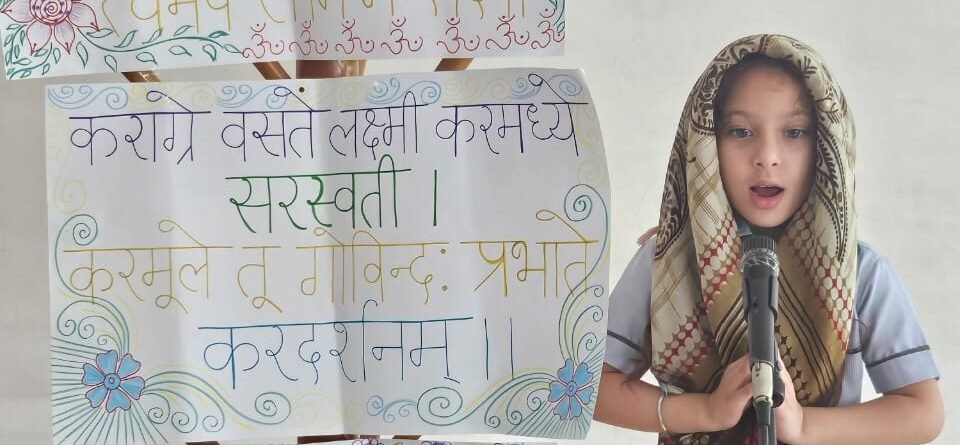 त्वमेव
ॐ ॐ ॐ ॐ ॐ ॐ ॐ
कराग्रे वसते लक्ष्मी करमध्ये
सरस्वती ।
करमूले तू गोविन्द: प्रभाते
करदर्शनम् ।।